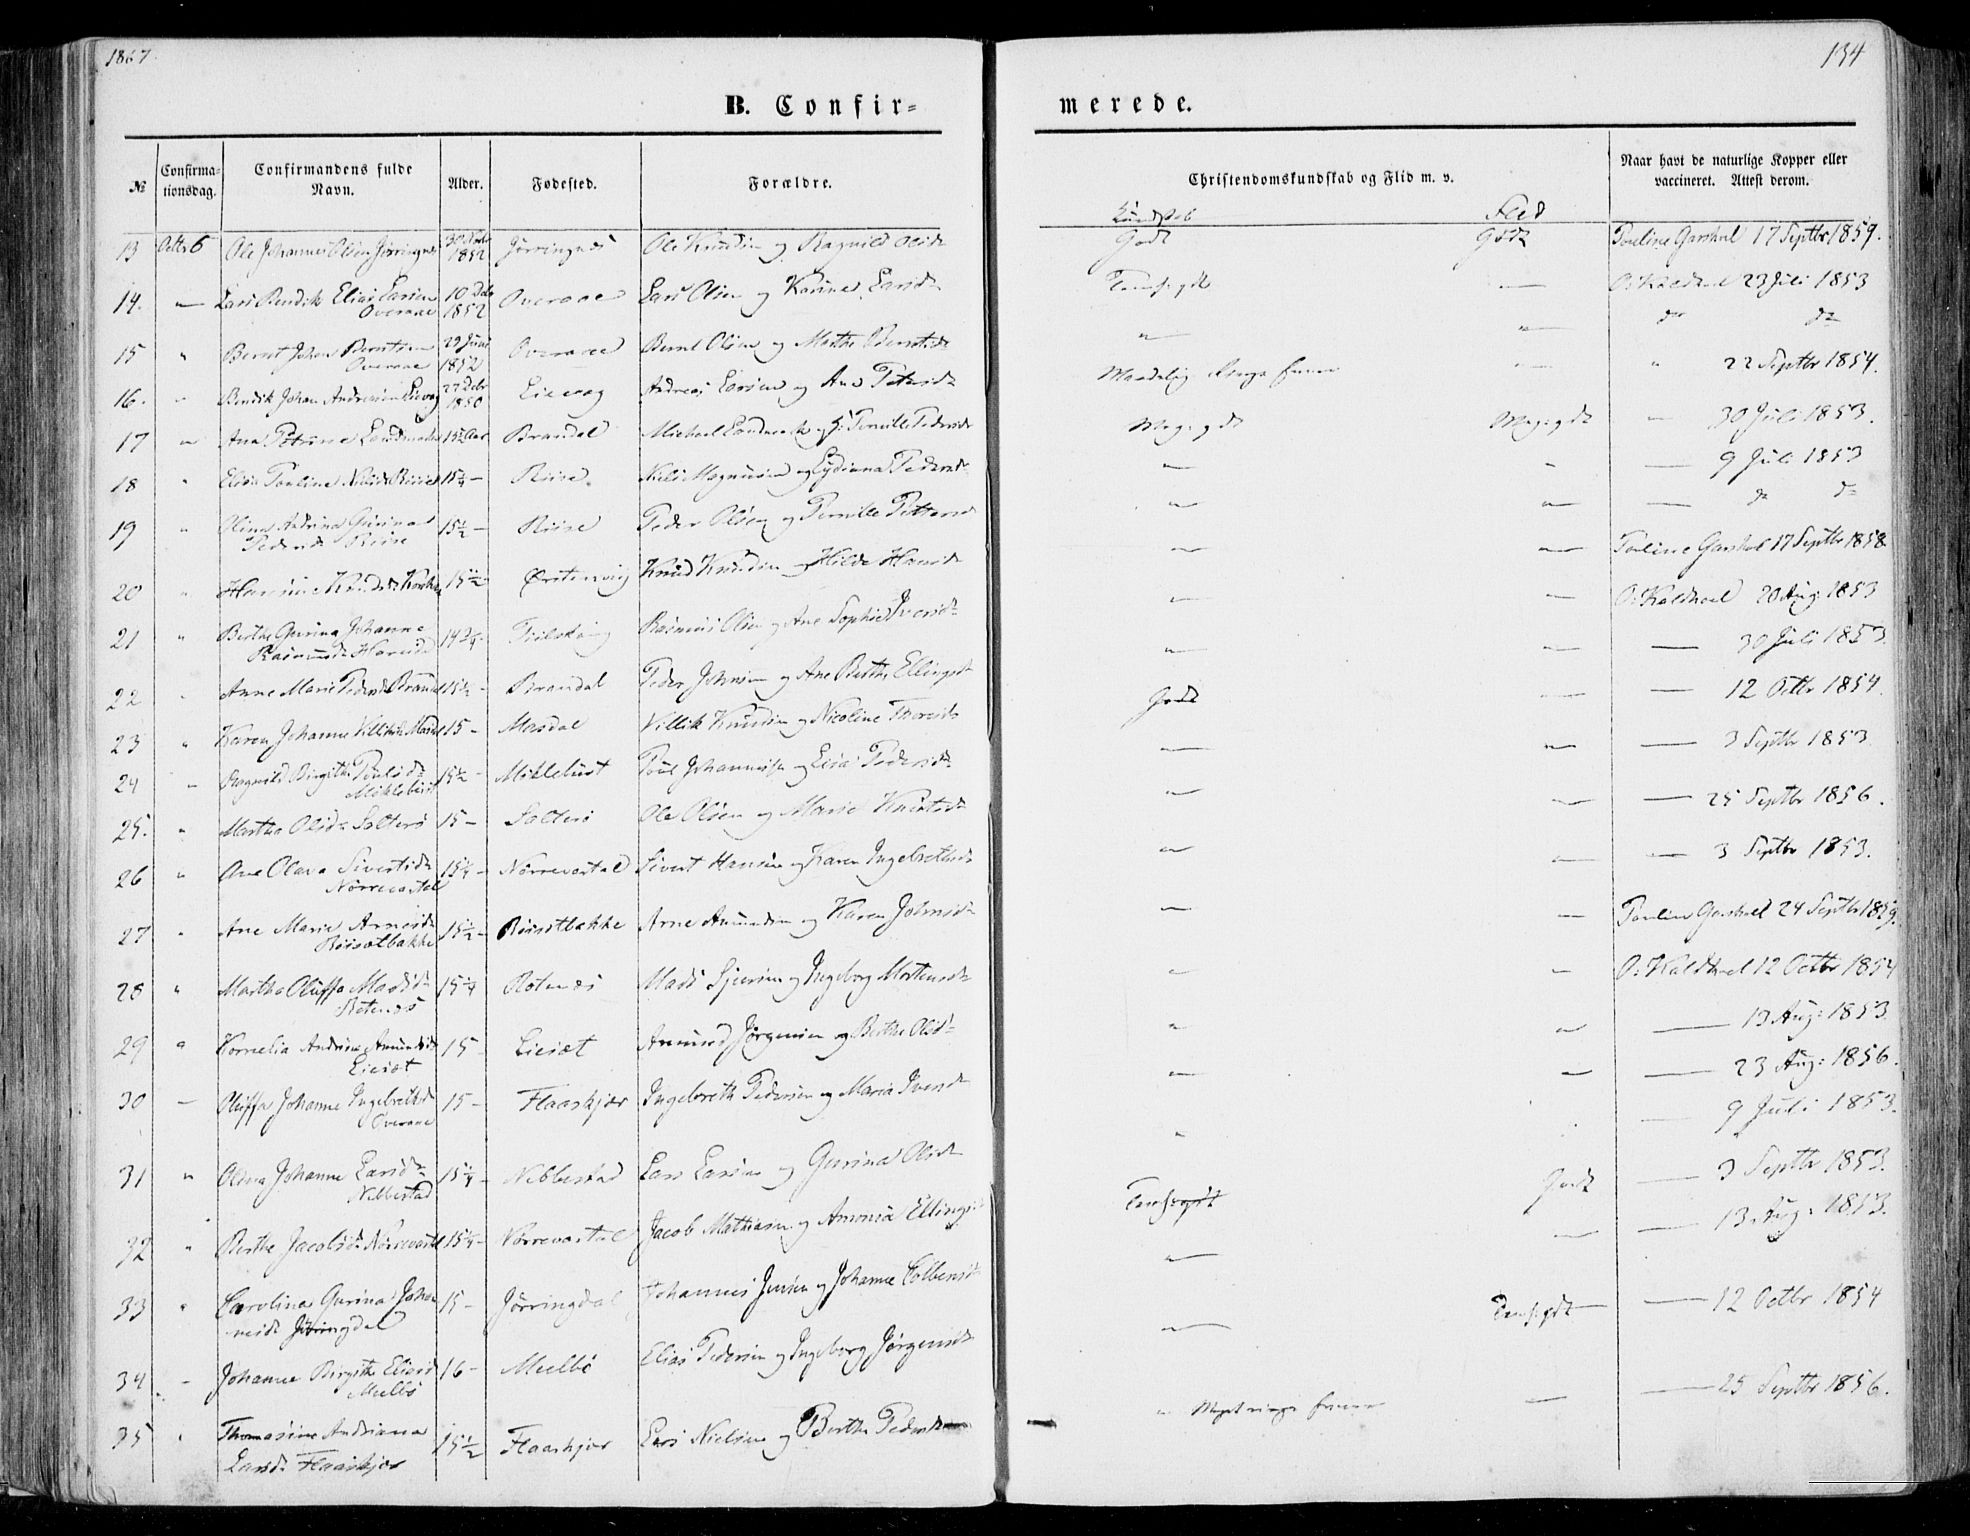 1867.
134
B. Confir=
merede.
№
Confirma=
tionsdag.
Confirmandens fulde
Navn.
Alder.
Fødested.
Forældre.
Christendomskundskab og Flid m. v.
Naar havt de naturlige Kopper eller
vaccineret. Attest derom.
Kundskab
Flid
13 Octb 6 Ole Johannes Olsen Jørringnes 1852 Jørringnes Ole Knudsen og Ragnild Olsdr Godt Godt Pouline Garshol 17 Septbr 1859.
14. — Lars Bendik Elias Larsen Overaae 10 Debr 1852 Overaae Lars Olsen og Karine Larsdr Temf. gdt — O. Kaldhol 23 Juli 1853
15 " Bernt Johan Berntsen Overaae 29 Juni 1852 Overaae Bernt Olsen og Marthe Berntsdr " " do do
16. " Bendik Johan Andreasen Lievag 27 Debr 1850 Lievag Andreas Larsen og Ane Petersdr Maadelig — " 22 Septbr 1854.
17 " Ana Petrine Landmark 15½ Aar Brandal Michael Landmark og Pernille Pedersdr Meg. gdt Meg. gdt — 30 Juli 1853.
18 " Elise Pouline Nilsdr Riise 15¼ — Riise Nils Magnusen og Lydiana Pedersdr — " — 9 Juli 1853
19 " Oline Andrina Gurina Pedersdr Riise 15½ — Riise Peder Olsen og Pernille Pettersdr " " — do do
20 " Hansine Knudsdr 15½ Ørstenvig Knud Knudsen og Hilde Hansdr — — Pouline Garshol 17 Septbr 1858
21 " Berthe Gurina Johanne Rasmusdr Hareide 14¾ Rasmus Olsen og Ane Sophie Iversdr — — O. Kaldhol 20 Aug: 1853
22 " Anne Marie Pedersdr Brandal 15½ — Brandal Peder Johnsen og Ane Berthe Ellingsdr " — — 30 Juli 1853.
23 " Karen Johanne Villiksdr Masdal 15 — Masdal Villik Knudsen og Nicoline Thoresdr Godt — — 12 Octbr 1854.
24 " Ragnild Birgithe Poulsdr Møklebust 15½ — Møklebust Poul Johannesen og Lisa Pedersdr — " — 3 Septbr 1853
25. " Martha Olsdr Solterø 15 — Ole Olsen og Marie Knudsdr " — — 25 Septbr 1856.
26 " Ane Olava Sivertsdr Nørrevartdal 15¼ — Nørrevartdal Sivert Hansen og Karen Ingebrethsdr " — — 3 Septbr 1853.
27 " Ane Marie Arnesdr Røisetbakke 15½ — Røisetbakke Arne Amundsen og Karen Johnsdr — — Pouline Garshol 24 Septbr 1859.
28 " Martha Oluffa Madsdr Rotenæs 15¼ Rotenæs Mads Sjursen og Ingeborg Mortensdr " — O. Kaldhol 12 Octbr 1854
29 " Kornelia Andrine Amundsdr Liesæt 15 — Liesæt Amund Jørgensen og Berthe Olsdr " " — 13 Aug: 1853.
30 — Oluffa Johanne Ingebrethsdr Overaae 15 — Flaaskjær Ingebreth Pedersen og Maria Iversdr — — — 23 Aug: 1856.
31 " Olina Johanne Larsdr Nebbestad 15¼ — Nebbestad Lars Larsen og Gurina Olsdr " — 9 Juli 1853.
32 " Berthe Jacobsdr Nørrevartdal 15¼ — Nørrevartdal Jacob Mathiasen og Amonia Ellingsdr Temf. gdt Godt — 3 Septbr 1853.
33 " Carolina Gurina Johannesdr Jørringdal 15 — Jørringdal Johannes Jensen og Johanne Colbensdr — — — 13 Aug: 1853.
34 — Johanne Birgithe Eliasdr Meelbø 16 — Meelbø Elias Pedersen og Ingeborg Jørgensdr — Temf. gdt — 12 Octbr 1854
35 " Thomasine Andriana Larsdr Flaaskjær 15½ Flaaskjær Lars Nielsen og Berthe Pedersdr " Meget — — 25 Septbr 1856.